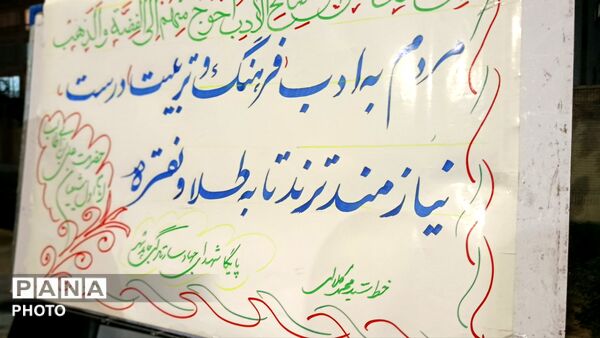 صالح الادب احوج منهم الی الفضة والذهب
مردم به ادب فرهنگ و تربیت درست
نیازمندترند تا به طلا و نقره
حضرت علی
پایگاه شهدای جهاد سازندگی
خط سید محمد
PANA
PHOTO